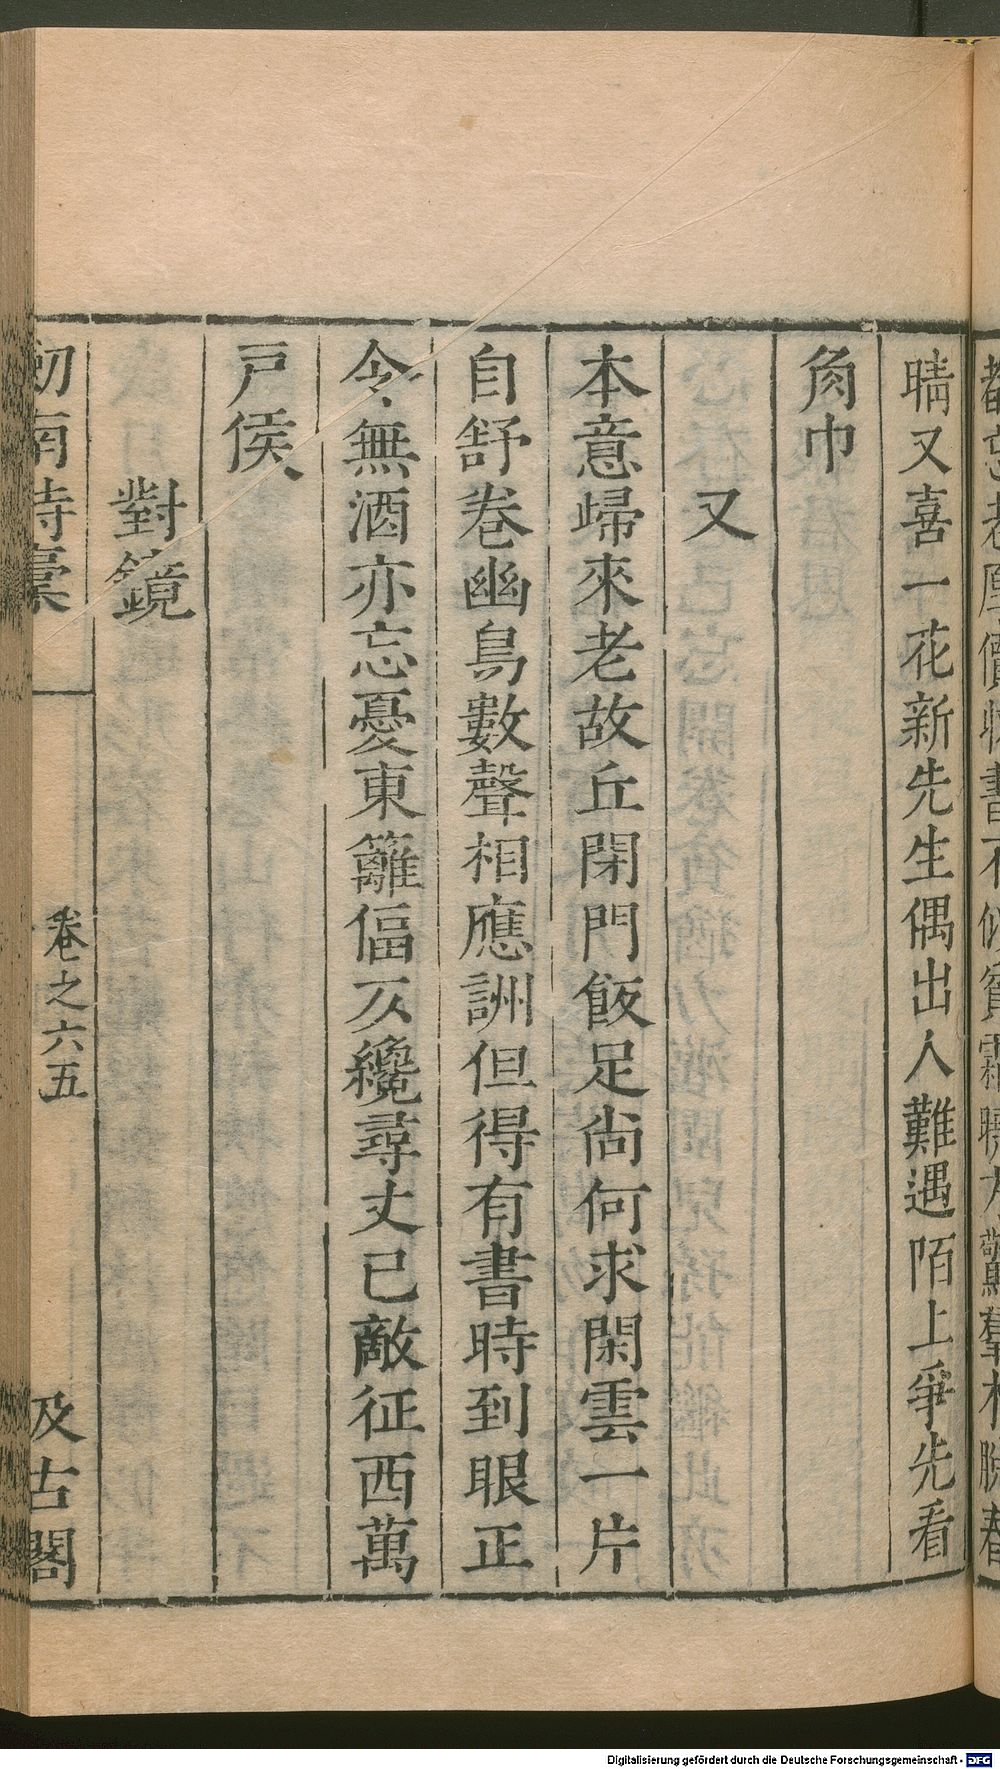 晴又喜一花新先生偶出人難遇陌上爭先看
角巾
又
本意歸來老故丘閉門飯足尙何求閑雲一片
自舒卷幽鳥數聲相應詶但得有書時到眼正
令無酒亦忘憂東籬偪仄纔尋丈已敵征西萬
戸侯
對鏡
劒南詩稾
卷之六五
汲古閣
Digitalisierung gefördert durch die Deutsche Forschungsgemeinschaft - DFG